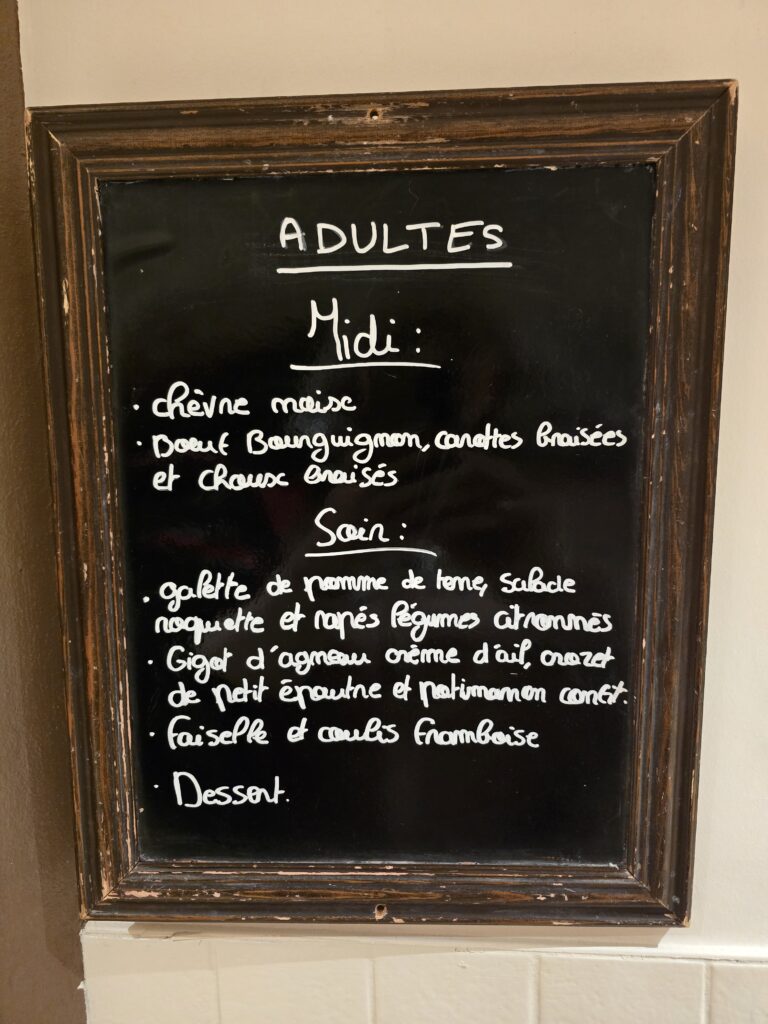 ADULTES
Midi :
· chèvre maise
· Bœuf Bourguignon, carottes braisées
et choux braisés
Soir :
· galette de pomme de terre, salade
roquette et rapés légumes citronnés
· Gigot d'agneau crème d'ail, crozet
de petit épautre et potimarron confit.
· faiselle et coulis framboise
· Dessert.